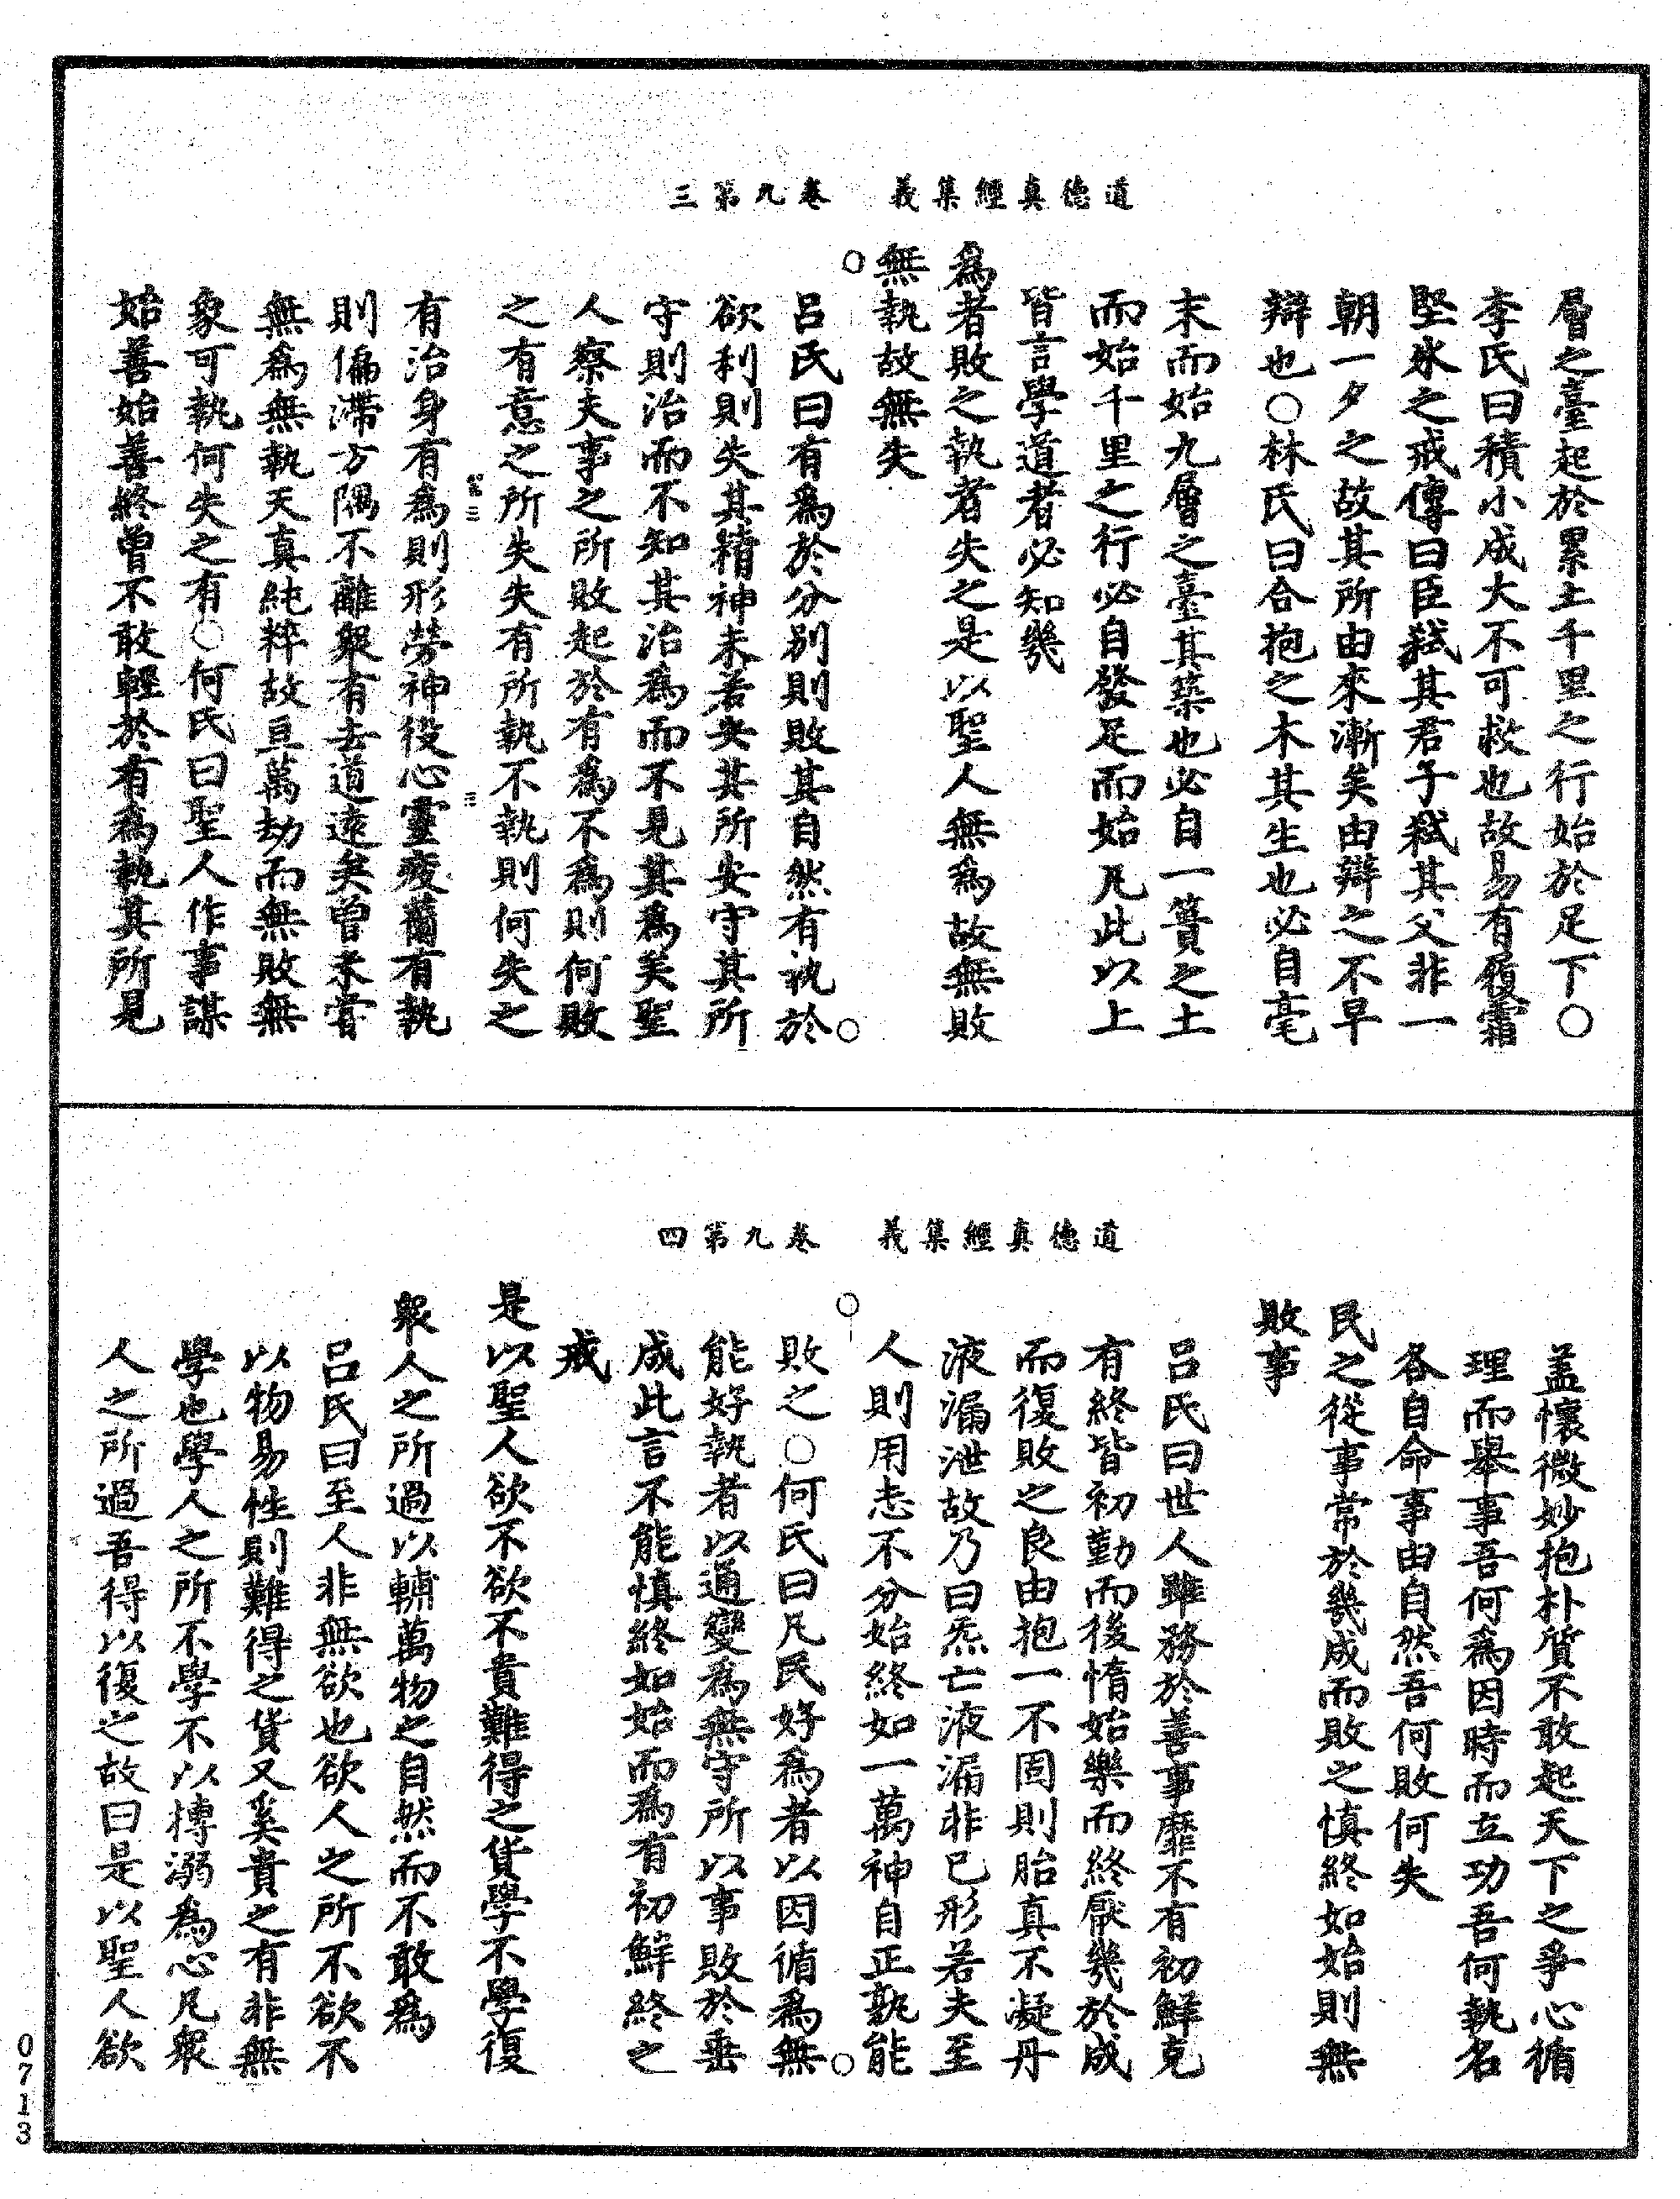 道德真經集義　卷九第三
層之臺起於累土千里之行始於足下○
李氏曰積小成大不可救也故易有履霜
堅氷之戒傳曰臣弑其君子弑其父非一
朝一夕之故其所由來漸矣由辯之不早
辯也○林氏曰合抱之木其生也必自毫
末而始九層之臺其築也必自一簣之土
而始千里之行必自發足而始凡此以上
皆言學道者必知幾
爲者敗之執者失之是以聖人無爲故無敗
無執故無失
呂氏曰有爲於分別則敗其自然有執於
欲利則失其精神未若安其所安守其所
守則治而不知其治爲而不見其爲矣聖
人察夫事之所敗起於有爲不爲則何敗
之有意之所失失有所執不執則何失之
有治身有爲則形勞神役心靈疲薾有執
則偏滯方隅不離衆有去道遠矣曾未嘗
無爲無執天真純粹故亘萬劫而無敗無
象可執何失之有○何氏曰聖人作事謀
始善始善終曾不敢輕於有爲執其所見
道德真經集義　卷九第四
盖懷微妙抱朴質不敢起天下之爭心循
理而舉事吾何爲因時而立功吾何執名
各自命事由自然吾何敗何失
民之從事常於幾成而敗之慎終如始則無
敗事
呂氏曰世人雖務於善事靡不有初鮮克
有終皆初勤而後惰始樂而終厭幾於成
而復敗之良由抱一不固則胎真不凝丹
液漏泄故乃曰炁亡液漏非己形若夫至
人則用志不分始終如一萬神自正孰能
敗之○何氏曰凡民好爲者以因循爲無
能好執者以通變爲無守所以事敗於垂
成此言不能慎終如始而爲有初鮮終之
戒
是以聖人欲不欲不貴難得之貨學不學復
衆人之所過以輔萬物之自然而不敢爲
呂氏曰至人非無欲也欲人之所不欲不
以物易性則難得之貨又奚貴之有非無
學也學人之所不學不以摶溺爲心凡衆
人之所過吾得以復之故曰是以聖人欲
0713